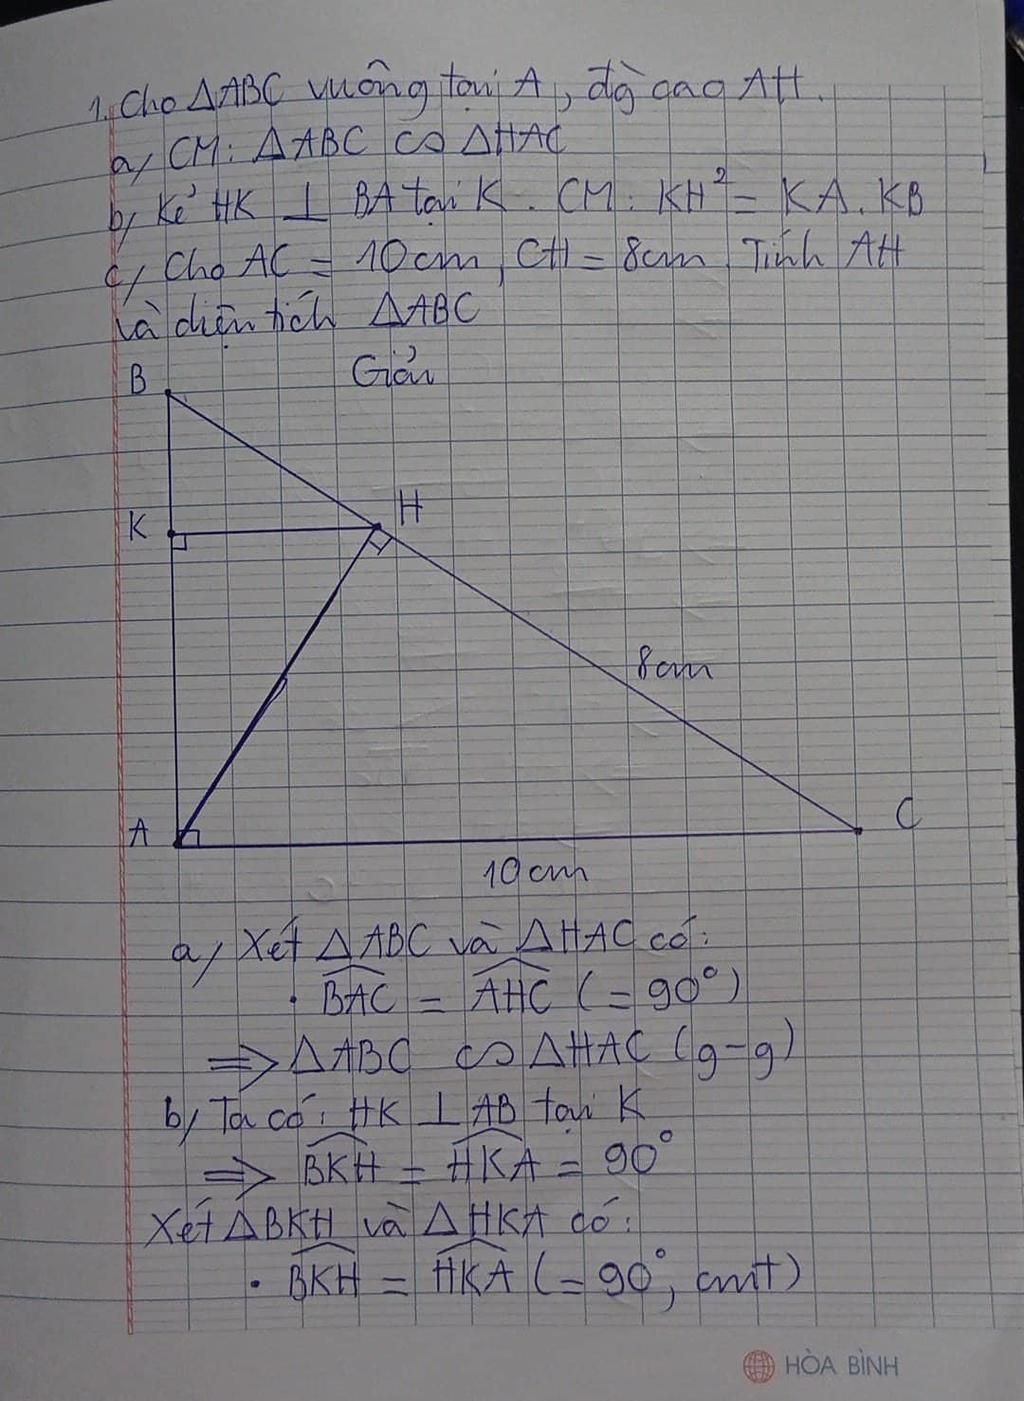 1. Cho △ABC vuông tại A, đg cao AH.
a/ CM: △ABC ∽ △HAC
b/ Kẻ HK ⊥ BA tại K. CM: KH² = KA.KB
c/ Cho AC = 10cm, CH = 8cm. Tính AH
và diện tích △ABC
Giải
B
K
H
8cm
A
C
10cm
a/ Xét △ABC và △HAC có:
• \widehat{BAC} = \widehat{AHC} (= 90°)
⇒ △ABC ∽ △HAC (g-g)
b/ Ta có: HK ⊥ AB tại K
⇒ \widehat{BKH} = \widehat{HKA} = 90°
Xét △BKH và △HKA có:
• \widehat{BKH} = \widehat{HKA} (= 90°, cmt)
HÒA BÌNH